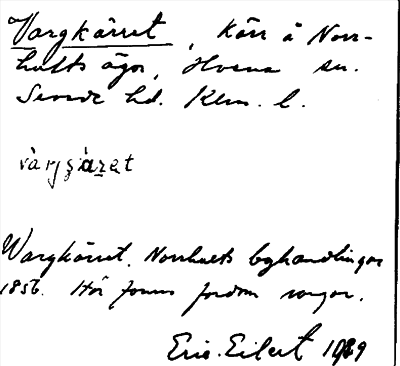 Vargkärret, Kärr å Norr-
hults ägor, Hvena sn.
Sevede hd. Klm. l.
Wargkärret. Norrhults lyhandlingar
1856. Här funns fordom vargar.
Eric Eilert 1969